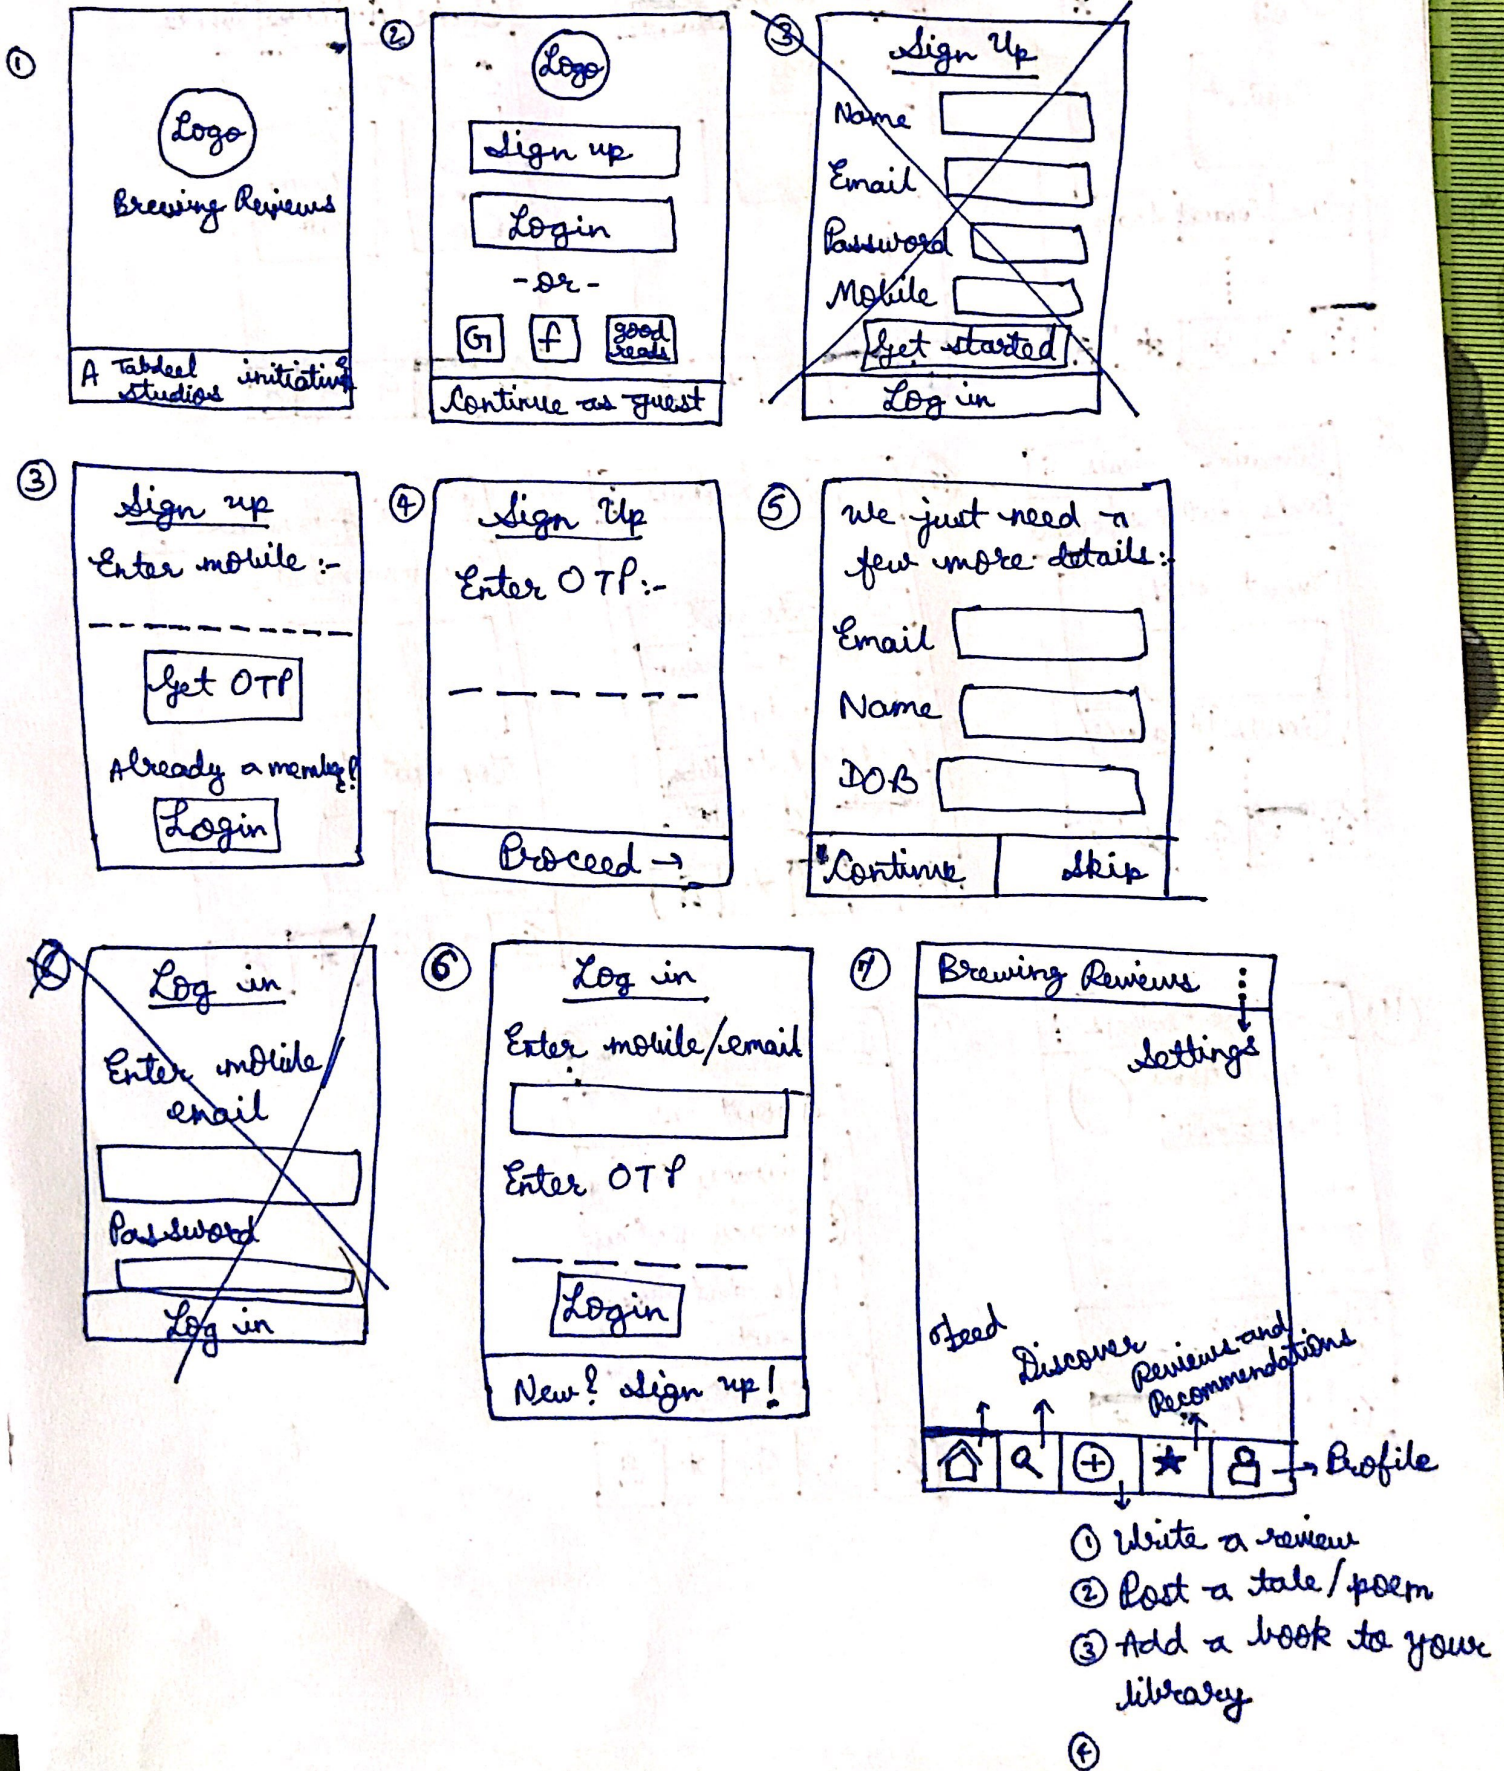 ①
Logo
Brewing Reviews
A Tabdeel Studios initiative
②
Logo
Sign up
Login
-or-
G f good reads
Continue as guest
③
Sign Up
Name
Email
Password
Mobile
Get started
Log in
③
Sign up
Enter mobile :-
Get OTP
Already a member?
Login
④
Sign Up
Enter OTP:-
Proceed →
⑤
We just need a
few more details:-
Email
Name
DOB
Continue Skip
Log in
Enter mobile/
email
Password
Log in
⑥
Log in
Enter mobile/email
Enter OTP
Login
New? Sign up!
⑦
Brewing Reviews
Settings
Feed
Discover
Reviews and
Recommendations
→ Profile
① Write a review
② Post a tale/poem
③ Add a book to your
library
④